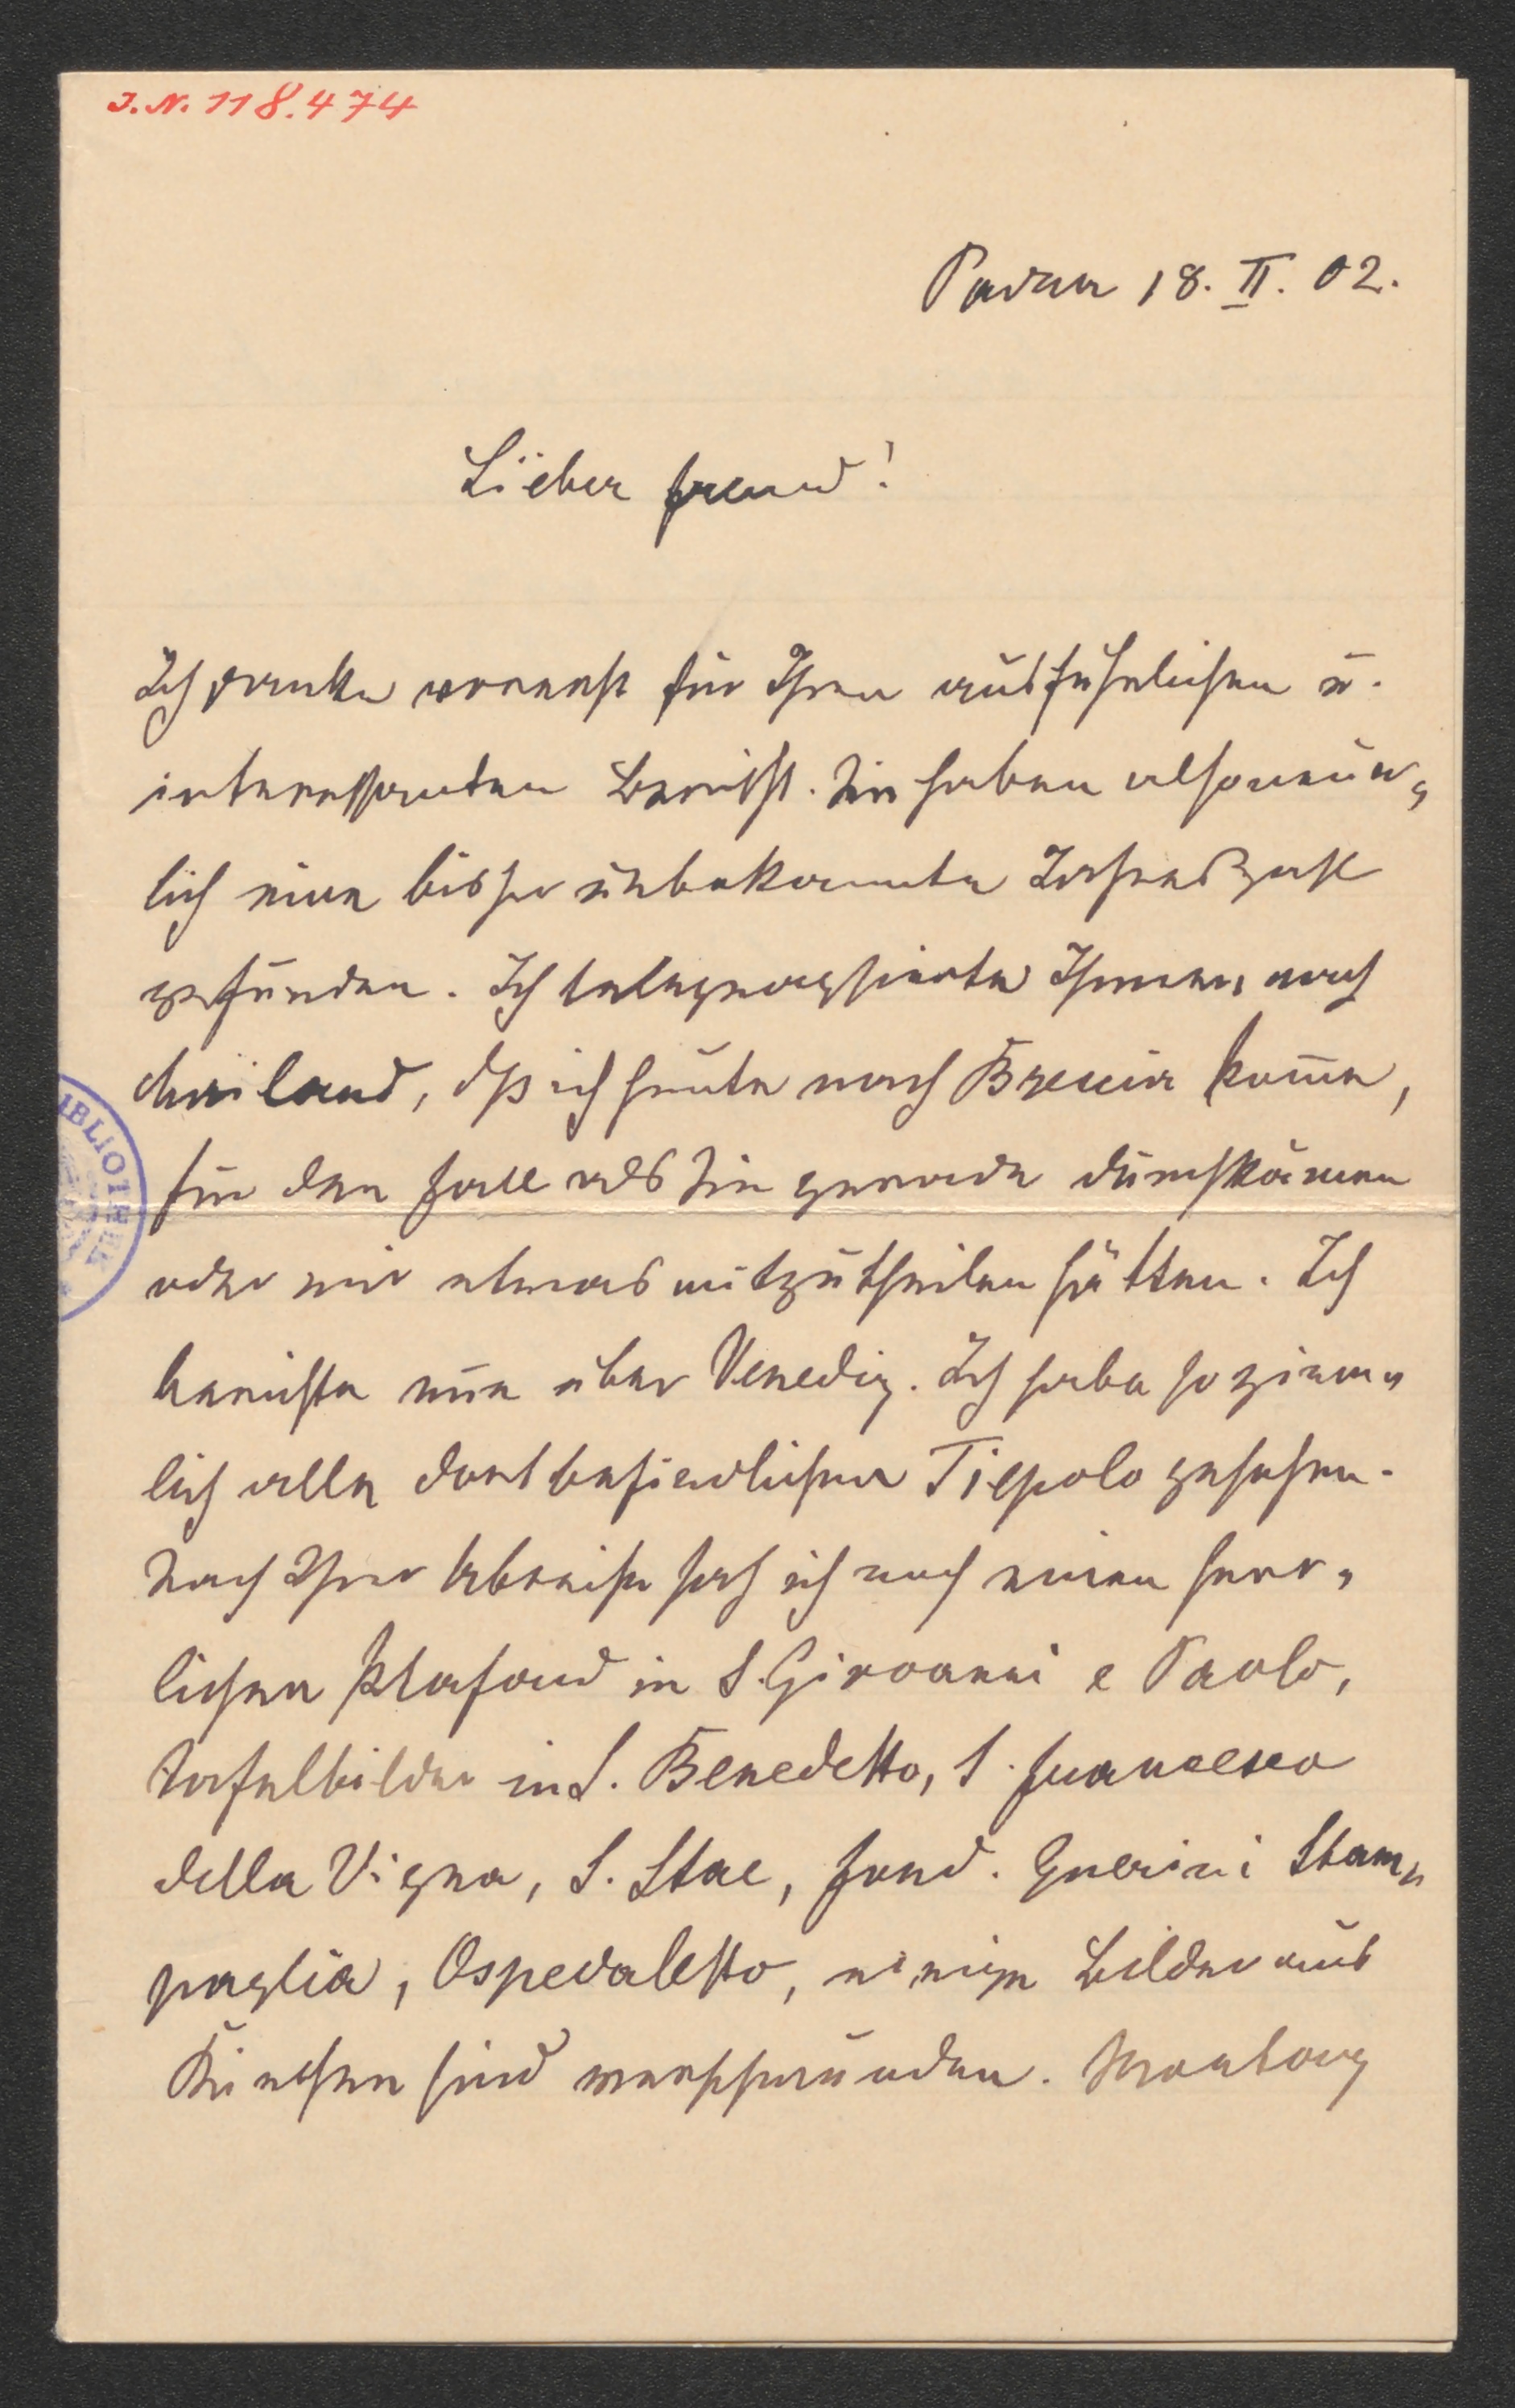 J.N. 118.474
Padua 18. II. 02.
Lieber Freund!
Ich danke vorerst für Ihren ausführlichen u.
interessanten Bericht. Sie haben also neuer„
lich eine bisher unbekannte Jahreszahl
gefunden. Ich telegraphierte Ihnen nach
Mailand, dß ich heute nach Brescia kom̄e,
für den Fall als Sie gerade durchkämen
oder mir etwas mitzutheilen hätten. Ich
berichte nun über Venedig. Ich habe so ziem„
lich alle dort befindlichen Tiepolo gesehen.
Nach Ihrer Abreise sah ich noch einen herr„
lichen Plafond in S. Giovanni e Paolo,
Tafelbilder in S. Benedetto, S. Francesco
della Vigna, S. Stae, Fond. Querini Stam„
paglia, Ospedaletto, einige Bilder aus
Kirchen sind verschwunden. Montag
IBLIOTHEK